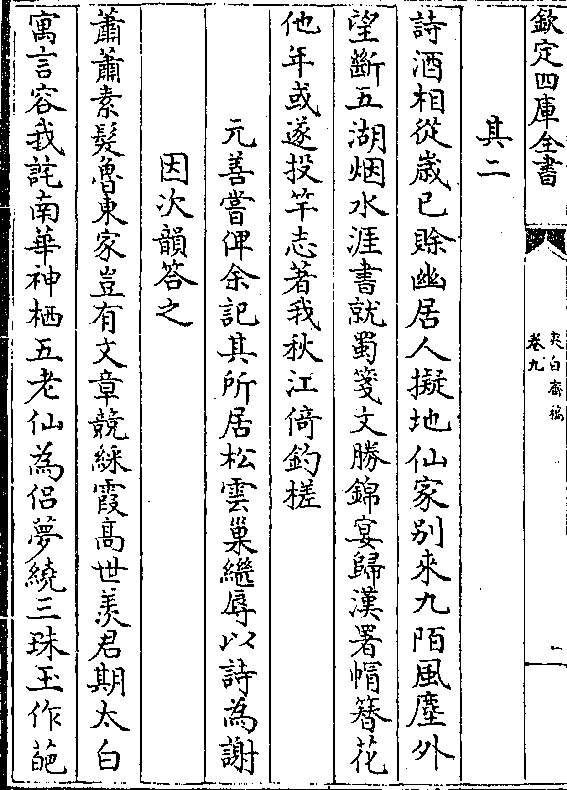 欽定四庫全書
夾白齋稿
卷九
一
其二
詩酒相從歲已賒幽居人擬地仙家別來九陌風塵外
望斷五湖烟水涯書就蜀箋文勝錦宴歸漢署㡌簪花
他年或遂投竿志著我秋江倚釣槎
元善嘗俾余記其所居松雲巢繼辱以詩為謝
因次韻答之
蕭蕭素髮魯東家豈有文章競綵霞髙世羨君期太白
寓言容我詫南華神栖五老仙為侣夢繞三珠玉作葩